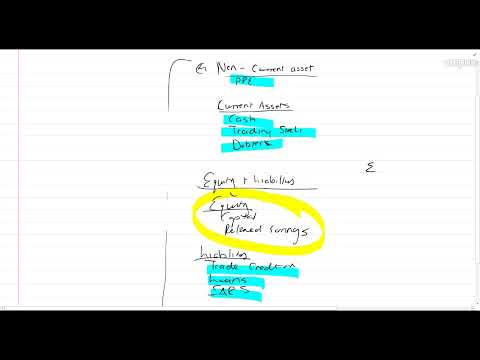 Non - Current asset
PPE
Current Assets
Cash
Trading Stock
Debtors
Equity + liabilities
Equity
Capital
Retained earnings
Liabilities
Trade Creditors
Loans
SARS
Σ